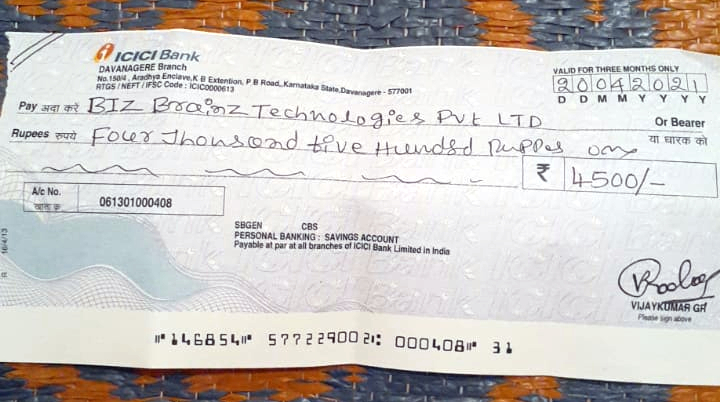 ICICI Bank
DAVANAGERE Branch
No.150/4, Aradhya Enclave, K B Extention, P B Road, Karnataka State, Davanagere - 577001
RTGS / NEFT / IFSC Code : ICIC0000613
VALID FOR THREE MONTHS ONLY
20042021
D D M M Y Y Y Y
Pay अदा करें BIZ Brainz Technologies Pvt LTD
Or Bearer
या धारक को
Rupees रुपये Four Thousand five Hundsd Ruppes only
₹ 4500/-
A/c No.
खाता क्र.
061301000408
SBGEN CBS
PERSONAL BANKING : SAVINGS ACCOUNT
Payable at par at all branches of ICICI Bank Limited in India
VIJAYKUMAR GH
Please sign above
⑈146854⑈ 577229002⑆ 000408⑈ 31